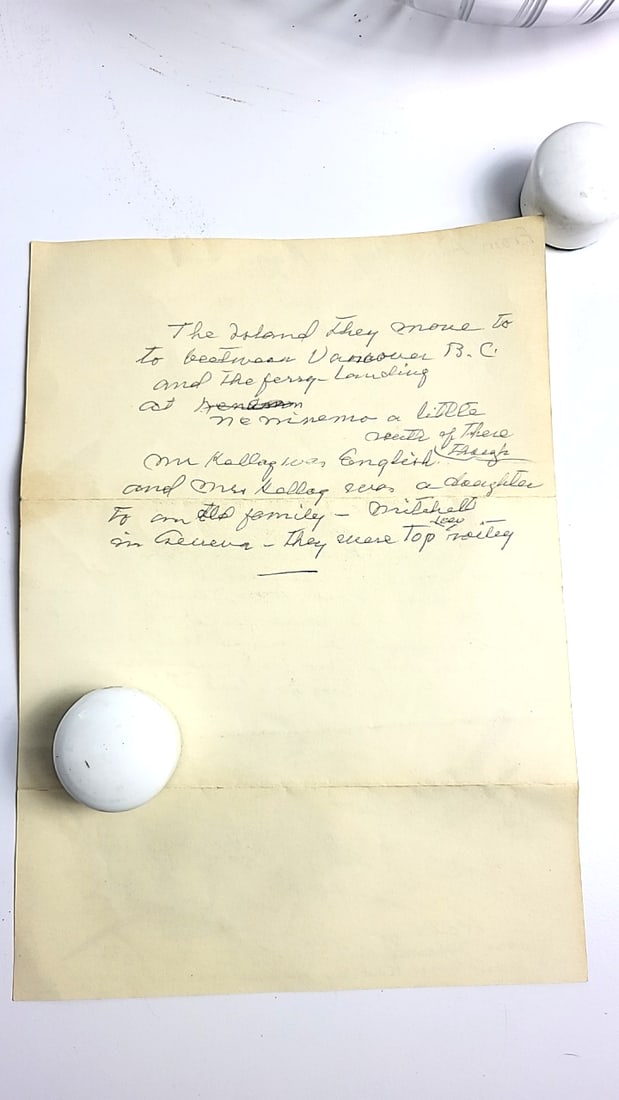 The Island they move to
to beetween Vancouver B.C.
and the ferry-Landing
at
neninemo a little
of there
though
Mr Kellog was English
and Mrs Kellog was a daughter
to an old family - Mitchell
in Geneva - they were Top